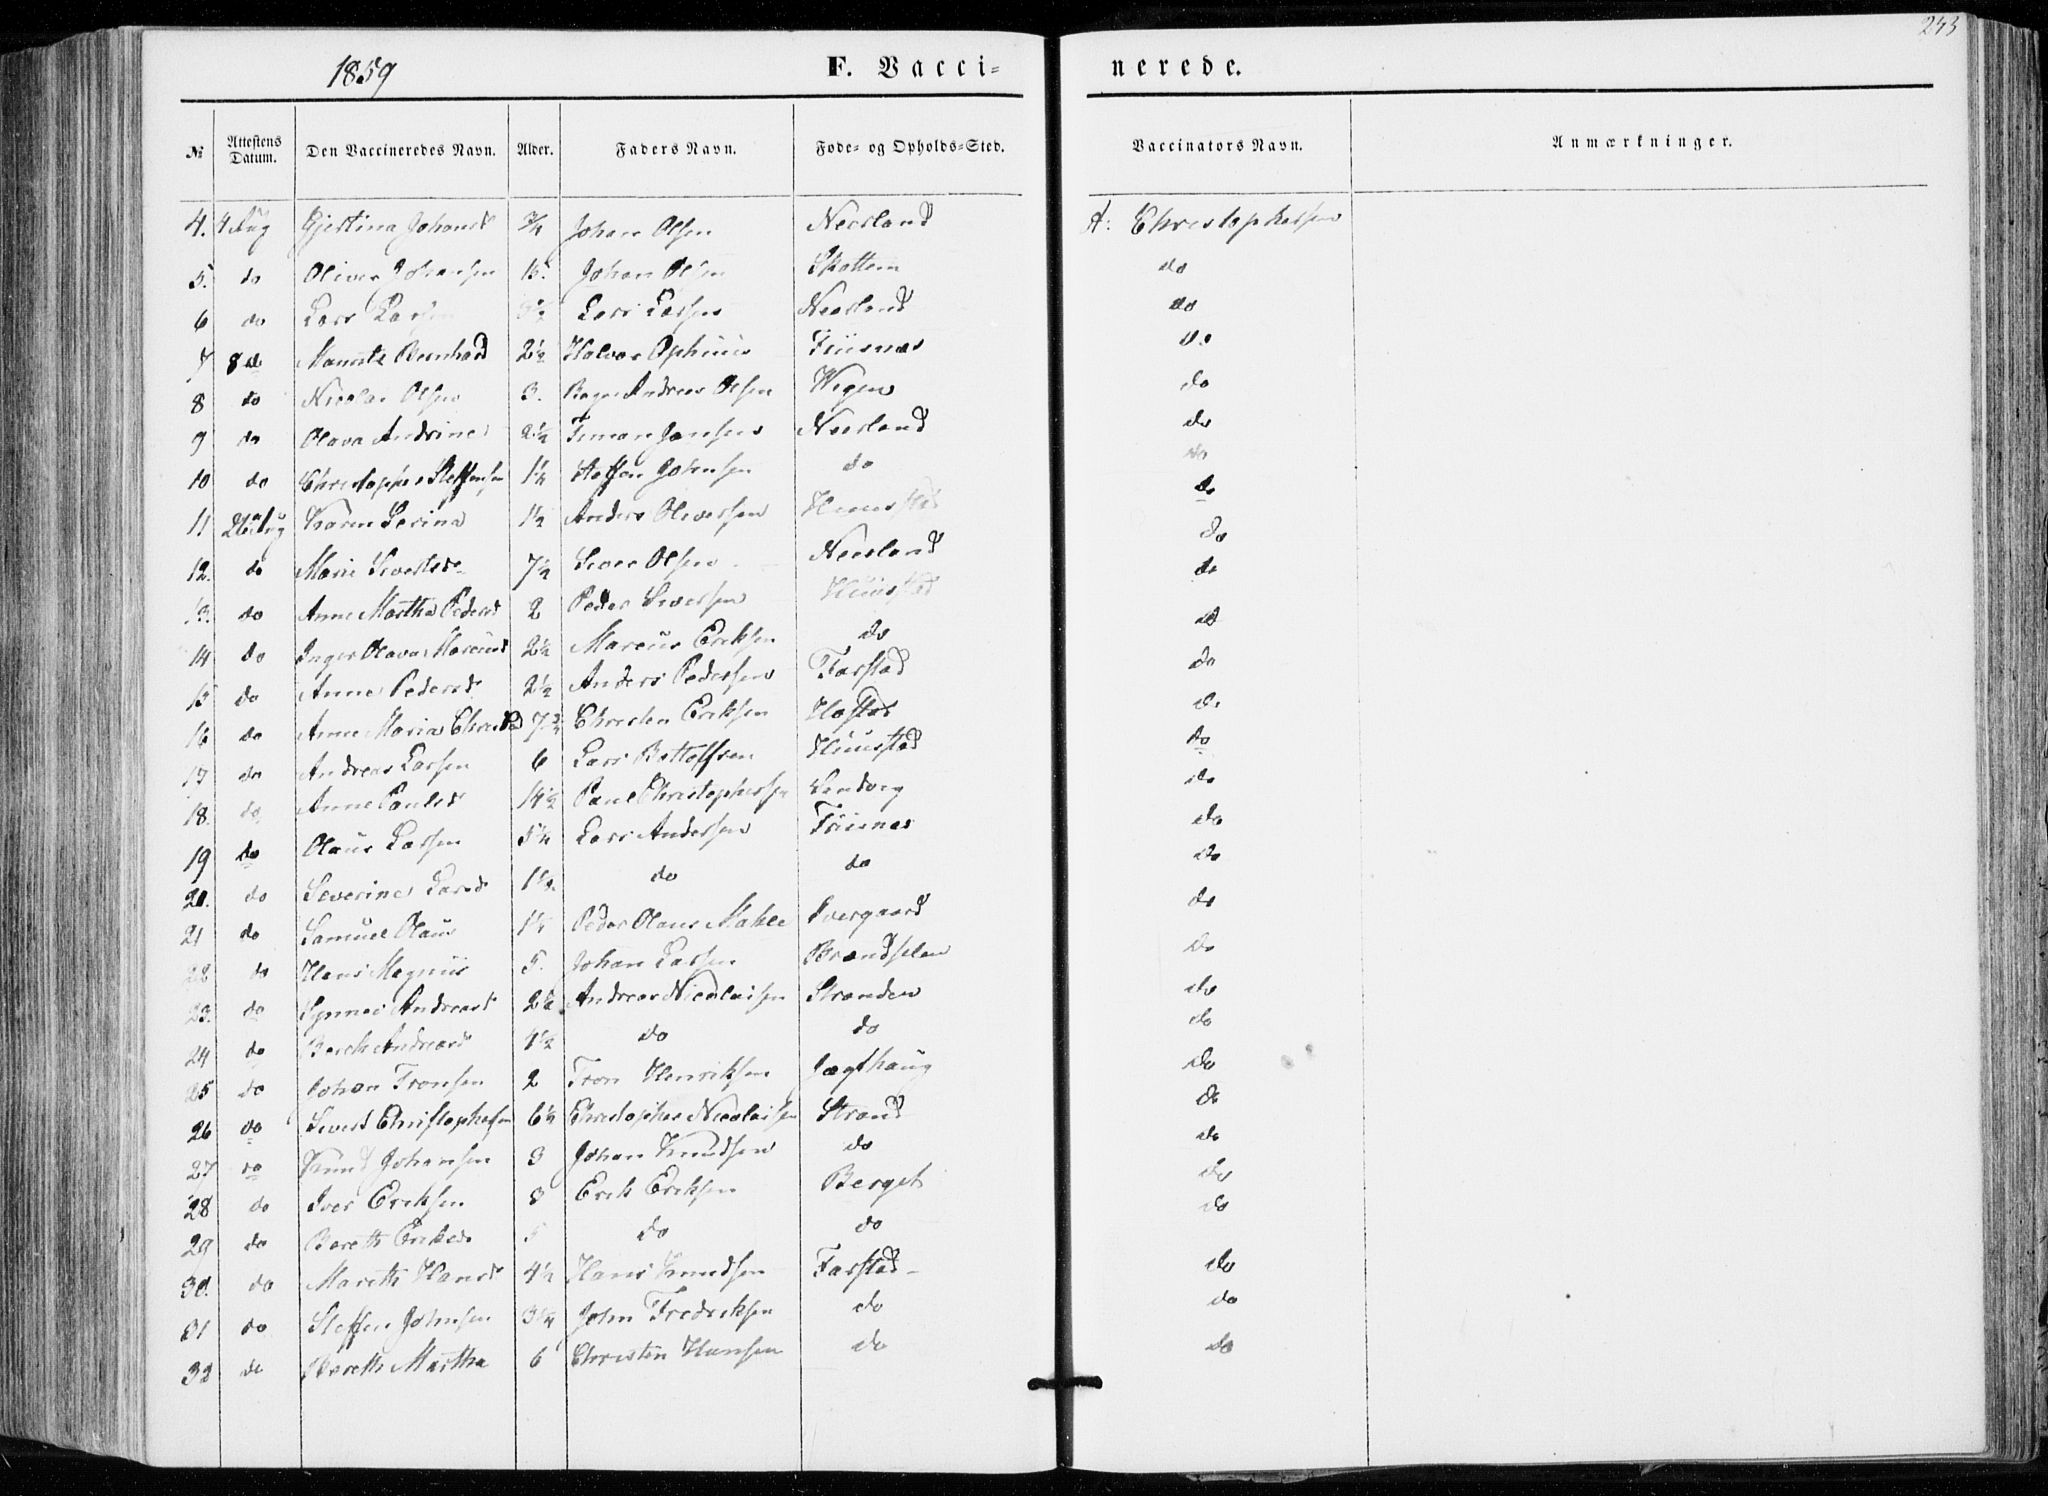 243
1859 F. Vacci- nerede.
№ Attestens Datum. Den Vaccineredes Navn. Alder. Faders Navn. Føde- og Opholds-Sted. Vaccinators Navn. Anmærkninger.
4. 4 Aug Gjertina Johansd 3/4 Johan Olsen Neerland A: Christophersen
5. do Oliver Johansen Johan Olsen Skottem do
6 do Lars Larsen Lars Larsen Neerland do
7 8 do Bernhard 2½ Halvor Friisnes do
8 do Nicolai Olsen 3. Andreas Olsen Vigen do
9 do Olava Andrine 2½ Jensen Neerland do
10 do Christopher Steffensen 1¼ Steffen Johnsen do do
11 26 Aug Karen Serina 1½ Anders Oliversen Huustad do
12. do Marie Sivertsd 7½ Siver Olsen Neerland do
13. do Anne Martha Pedersd 2 Peder Siversen Huustad do
14 do Inger Olava Marcusd 2½ Marcus Eriksen do do
15 do Anne Pedersd 2½ Anders Pedersen Farstad do
16 do Anne Maria Christend Christen Eriksen Hostad do
17 do Andreas Larsen 6 Lars Huustad do
18. do Anne Paulsd 14½ Paul Christophersen do
19 do Olaus Larsen 5¼ Lars Andersen Friisnes do
20. do Severine Larsd 1½ do do do
21 do Samuel Olaus Peder Olaus do
22 do Hans Magnus 5. Johan Larsen do
23. do Synnev Andreasd 2½ Andreas Nicolaisen Stranden do
24 do Andreasd 4½ do do do
25 do Johan Tronsen 2 Tron Henriksen Jægthaug do
26 do Sivert Christophersen 6½ Christopher Nicolaisen Strand do
27 do Knud Johansen 3 Johan Knudsen do do
28 do Iver Eriksen 8 Erik Eriksen Berget do
29 do Bereth Eriksd 5 do do do
30. do Mareth Hansd 4½ Hans Knudsen Farstad do
31 do Steffen Johnsen 3¼ John Fredriksen do do
32 do Bereth Martha 6 Christen Hansen do do